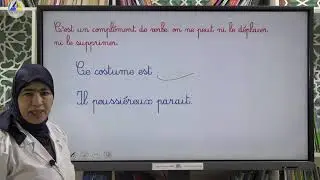 C'est un complément de verbe on ne peut ni le déplacer
ni le supprimer.
Ce costume est
Il poussiéreux parait.